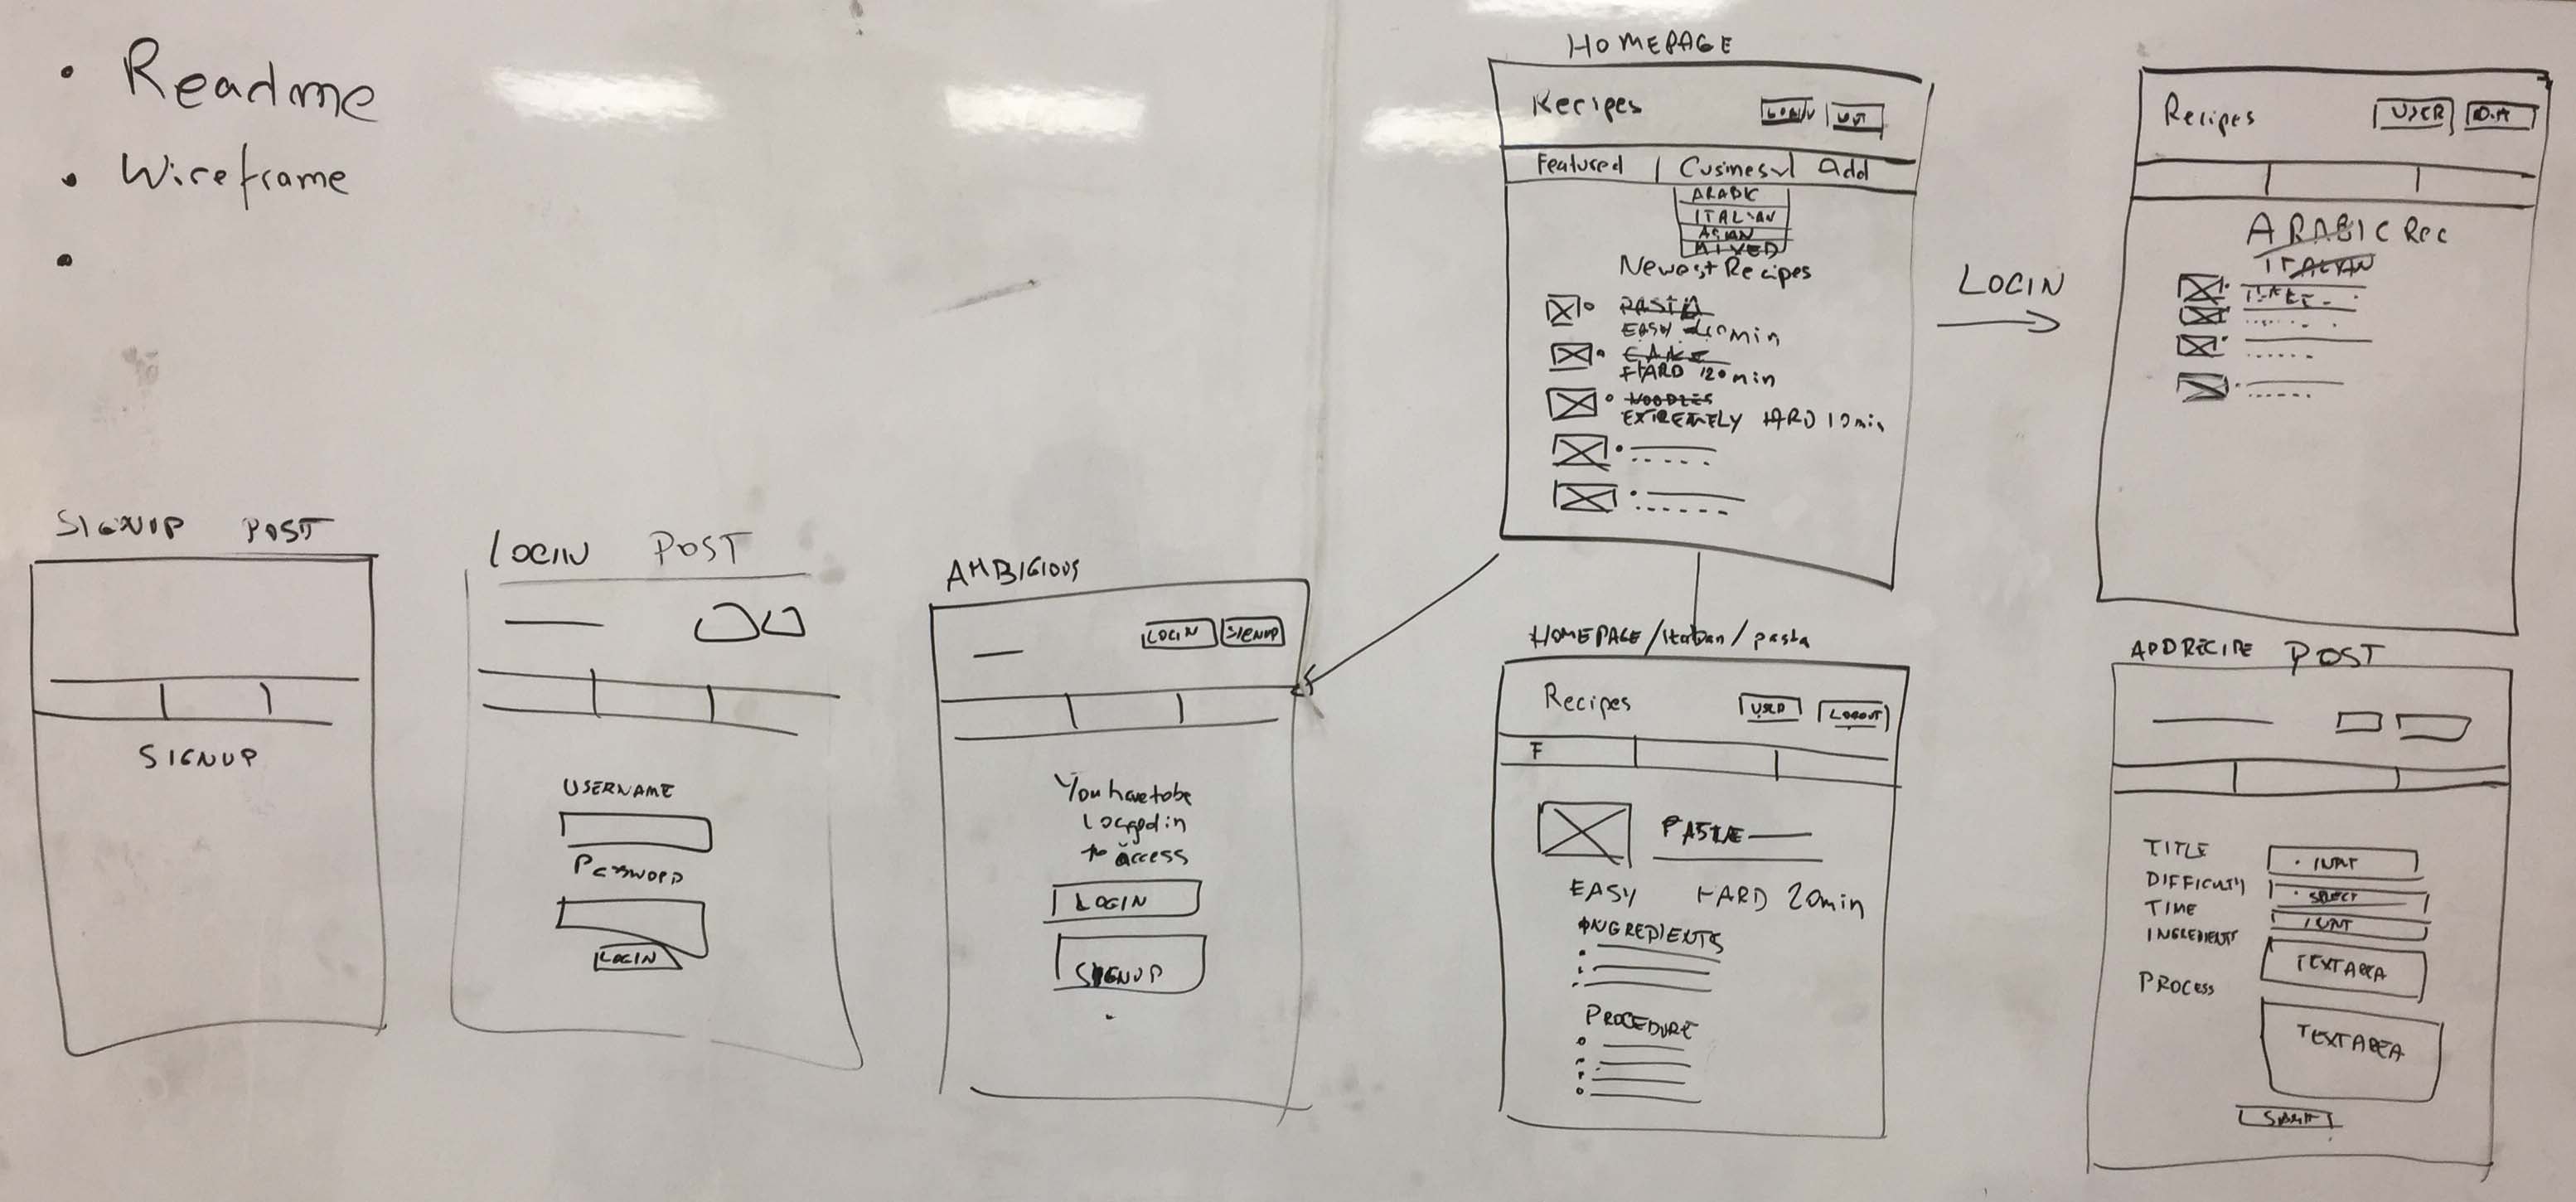 • Readme
• Wireframe
•
HOMEPAGE
Recipes LOGIN
Featured | Cusines | Add
ARABIC
ITALIAN
ASIAN
MIXED
Newest Recipes
PASTA
EASY min
CAKE
HARD 120 min
NOODLES
EXTREMELY HARD 10 min
LOGIN
Recipes USER
ARABIC Rec
ITALIAN
SIGNUP POST
SIGNUP
LOGIN POST
USERNAME
PASSWORD
LOGIN
AMBIGIOUS
LOGIN SIGNUP
You have to be
Logged in
to access
LOGIN
SIGNUP
HOMEPAGE/Italian/pasta
Recipes USER LOGOUT
F
EASY HARD 20min
INGREDIENTS
PROCEDURE
ADDRECIPE POST
TITLE INPUT
DIFFICULTY SELECT
TIME INPUT
INGREDIENTS TEXTAREA
PROCESS TEXTAREA